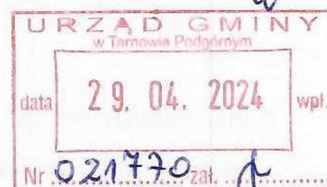 URZĄD GMINY
w Tarnowie Podgórnym
data 29. 04. 2024 wpł.
Nr 021770 zał.